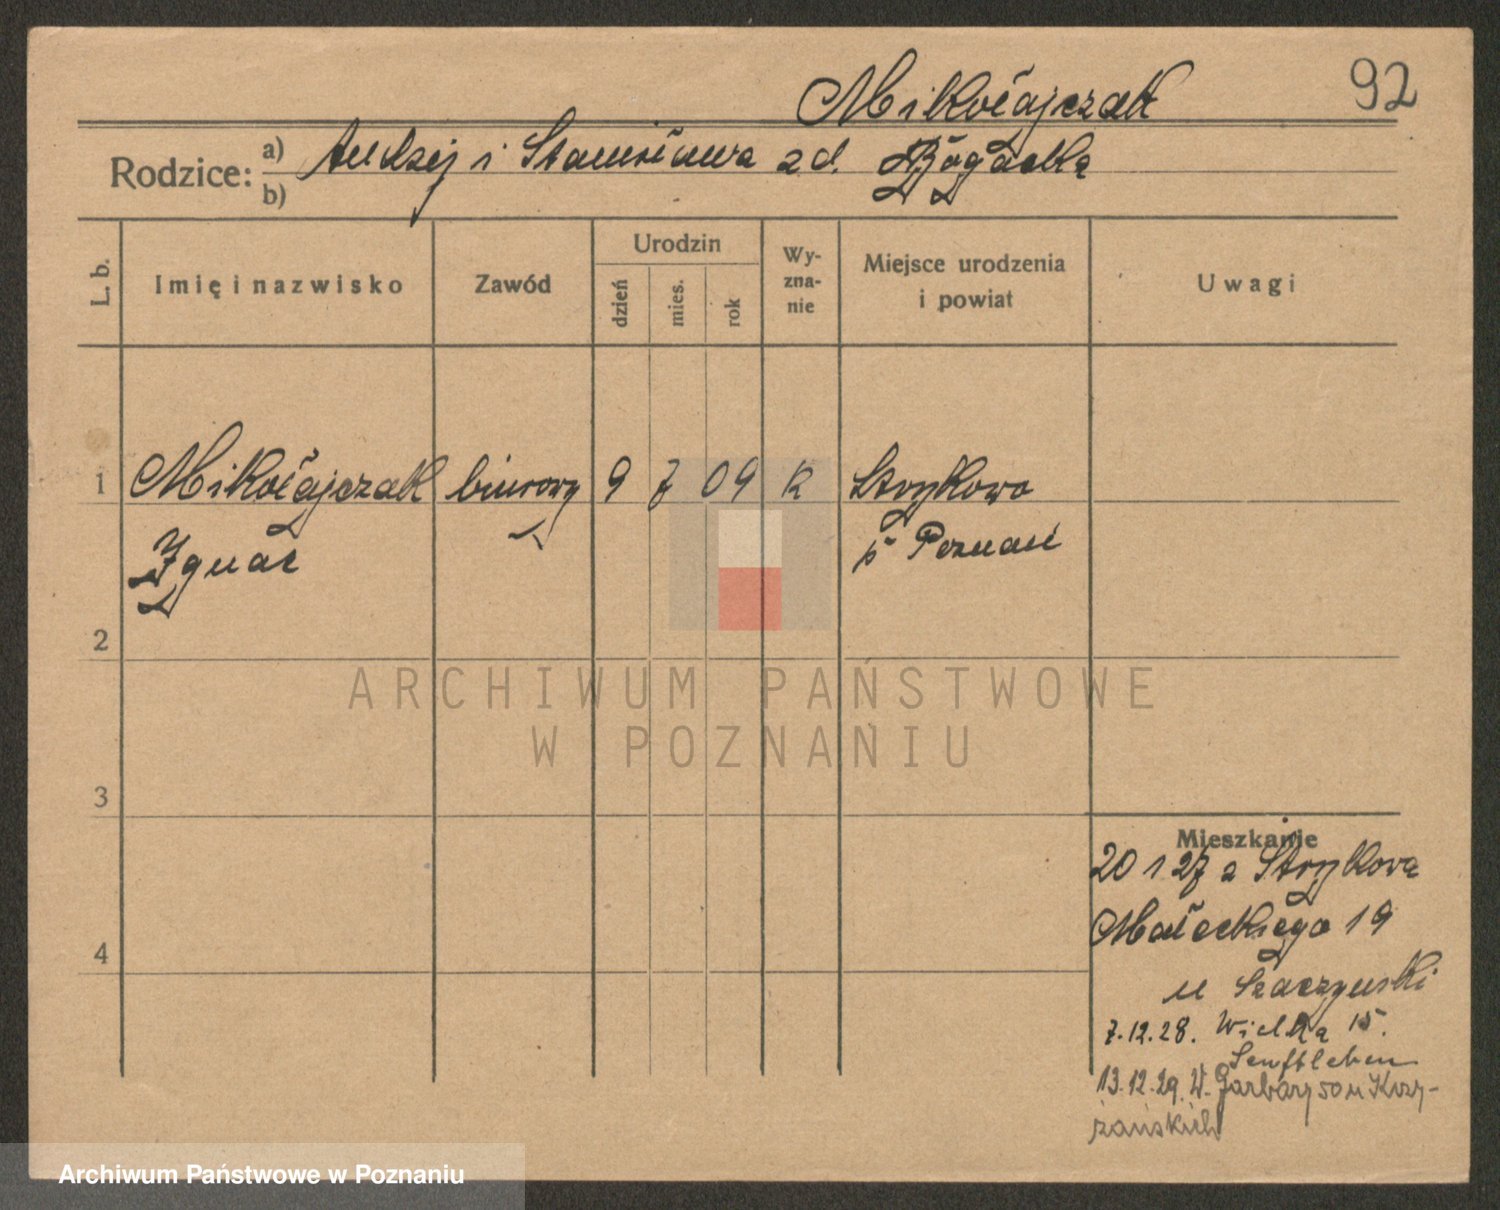 Mikołajczak 92
Rodzice: a) Andrzej i Stanisława zd. Bogacka
b)
L. b. Imię i nazwisko Zawód Urodzin dzień mies. rok Wy-zna-nie Miejsce urodzenia i powiat Uwagi
1 Mikołajczak biurowy 9 7 09 k Strykowo
Ignac p Poznań
2
ARCHIWUM PAŃSTWOWE
W POZNANIU
3
Mieszkanie
20 1 27 z Strykowa
Małeckiego 19
u Szaczynski
4
7.12.28. Wielka 15.
Senftleben
13.12.29. W. Garbary 50 u Krzy-
żańskich
Archiwum Państwowe w Poznaniu